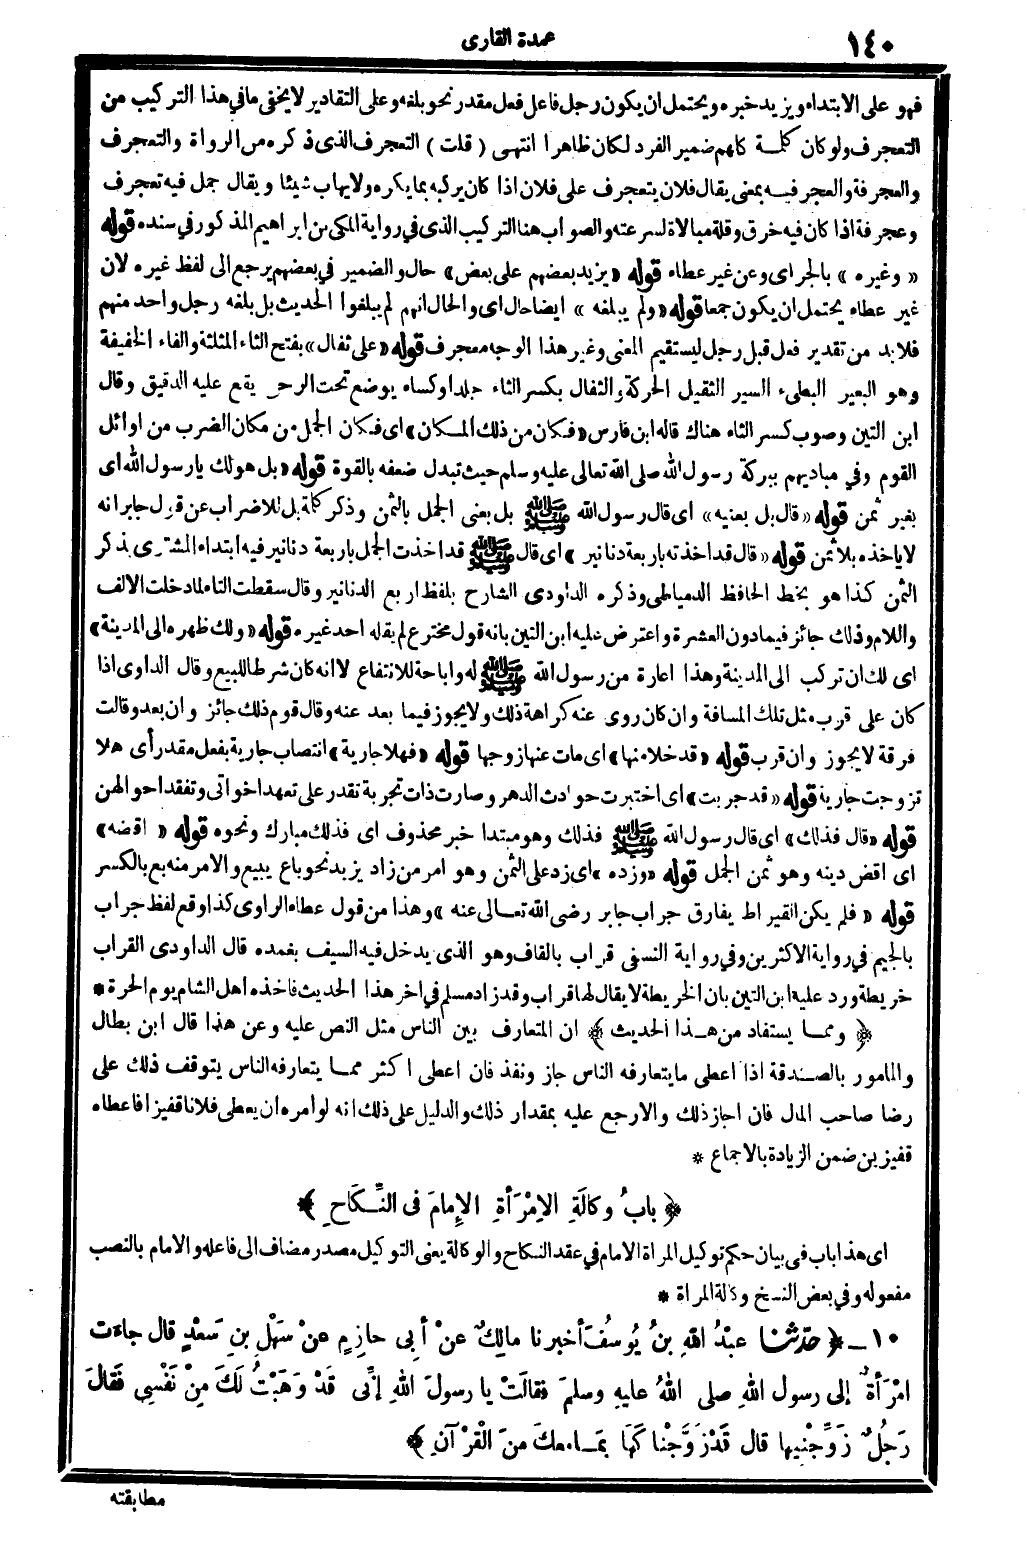 ١٤٠
عمدة القارى
فهو على الابتداء ويزيد خبره ويحتمل ان يكون رجل فاعل فعل مقدر نحو بلغه وعلى التقادير لا يخفى ما فى هذا التركيب من
التعجرف ولو كان كلمة كلهم ضمير الفرد لكان ظاهرا انتهى ( قلت ) التعجرف الذى ذكره من الرواة والتعجرف
والعجرفة والعجرفيـه بمعنى يقال فلان يتعجرف على فلان اذا كان يركبه بما يكره ولا يهاب شيئا ويقال جمل فيه تعجرف
وعجرفة اذا كان فيه خرق وقلة مبالاة لسرعته والصواب هنا التركيب الذى فى رواية المكى بن ابراهيم المذكور فى سنده قوله
« وغيره » بالجر اى وعن غير عطاء قوله « يزيد بعضهم على بعض » حال والضمير فى بعضهم يرجع الى لفظ غيره لان
غير عطاء يحتمل ان يكون جمعا قوله « ولم يبلغه » ايضا حال اى والحال انهم لم يبلغوا الحديث بل بلغه رجل واحد منهم
فلا بد من تقدير فعل قبل رجل ليستقيم المعنى وغير هذا الوجه معجرف قوله « على ثفال » بفتح الثاء المثلثة والفاء الخفيفة
وهو البعير البطىء السير الثقيل الحركة والثفال بكسر الثاء جلد او كساء يوضع تحت الرحى يقع عليه الدقيق وقال
ابن التين وصوب كسر الثاء هناك قاله ابن فارس « فكان من ذلك المكان » اى فكان الجمل من مكان الضرب من اوائل
القوم وفى مباديهم ببركة رسول الله صلى الله تعالى عليه وسلم حيث تبدل ضعفه بالقوة قوله « بل هو لك يا رسول الله اى
بغير ثمن قوله « قال بل بعنيه » اى قال رسول الله ﷺ بل بعنى الجمل بالثمن وذكر كلمة بل للاضراب عن قول جابر انه
لا ياخذه بلا ثمن قوله « قال قد اخذته باربعة دنانير » اى قال ﷺ قد اخذت الجمل باربعة دنانير فيه ابتداء المشترى بذكر
الثمن كذا هو بخط الحافظ الدمياطى وذكره الداودى الشارح بلفظ اربع الدنانير وقال سقطت التاء لما دخلت الالف
واللام وذلك جائز فيما دون العشرة واعترض عليه ابن التين بانه قول مخترع لم يقله احد غيره قوله « ولك ظهره الى المدينة »
اى لك ان تركب الى المدينة وهذا اعارة من رسول الله ﷺ له واباحة للانتفاع لا انه كان شرطا للبيع وقال الداوى اذا
كان على قرب مثل تلك المسافة وان كان روى عنه كراهة ذلك ولا يجوز فيما بعد عنه وقال قوم ذلك جائز وان بعد وقالت
فرقة لا يجوز وان قرب قوله « قد خلا منها » اى مات عنها زوجها قوله « فهلا جارية » انتصاب جارية بفعل مقدر أى هلا
تزوجت جارية قوله « قد جربت » اى اختبرت حوادث الدهر وصارت ذات تجربة تقدر على تعهد اخواتى وتفقد احوالهن
قوله « قال فذلك » اى قال رسول الله ﷺ فذلك وهو مبتدا خبر محذوف اى فذلك مبارك ونحوه قوله « اقضه »
اى اقض دينه وهو ثمن الجمل قوله « وزده » اى زد على الثمن وهو امر من زاد يزيد نحو باع يبيع والامر منه بع بالكسر
قوله « فلم يكن القيراط يفارق جراب جابر رضى الله تعـالى عنه » وهذا من قول عطاء الراوى كذا وقع لفظ جراب
بالجيم فى رواية الاكثرين وفى رواية النسفى قراب بالقاف وهو الذى يدخل فيه السيف بغمده قال الداودى القراب
خريطة ورد عليه ابن التين بان الخريطة لا يقال لها قراب وقد زاد مسلم فى اخر هذا الحديث فاخذه اهل الشام يوم الحرة *
﴿ وممـا يستفاد من هـذا الحديث ﴾ ان المتعارف بين الناس مثل النص عليه وعن هذا قال ابن بطال
والمامور بالصـدقة اذا اعطى ما يتعارفه الناس جاز ونفذ فان اعطى اكثر ممـا يتعارفه الناس يتوقف ذلك على
رضا صاحب المال فان اجاز ذلك والا رجع عليه بمقدار ذلك والدليل على ذلك انه لو امره ان يعطى فلانا قفيزا فاعطاه
قفيزين ضمن الزيادة بالاجماع *
﴿ بابُ وكالَةِ الاِمْرَأةِ الإمامَ فى النِّـكَاحِ ﴾
اى هذا باب فى بيان حكم توكيل المراة الامام فى عقد النـكاح والوكالة يعنى التوكيل مصدر مضاف الى فاعله والامام بالنصب
مفعوله وفى بعض النسـخ وكالة المراة *
١٠ ــ ﴿ حدّثنا عبْدُ اللهِ بنُ يُوسُفَ أخبرنا مالكٌ عنْ أبى حازِمٍ عنْ سَهْلِ بنِ سَعْدٍ قال جاءَت
امْرَأةٌ إلى رسول اللهِ صلى اللهُ عليهِ وسلمَ فقالَتْ يا رسولَ اللهِ إنِّى قَدْ وَهَبْتُ لَكَ مِنْ نَفْسِى فَقالَ
رَجُلٌ زَوِّجْنِيها قال قَدْ زَوَّجْنا كَهَا بِمَـا معكَ منَ القُرْآنِ ﴾
مطابقته